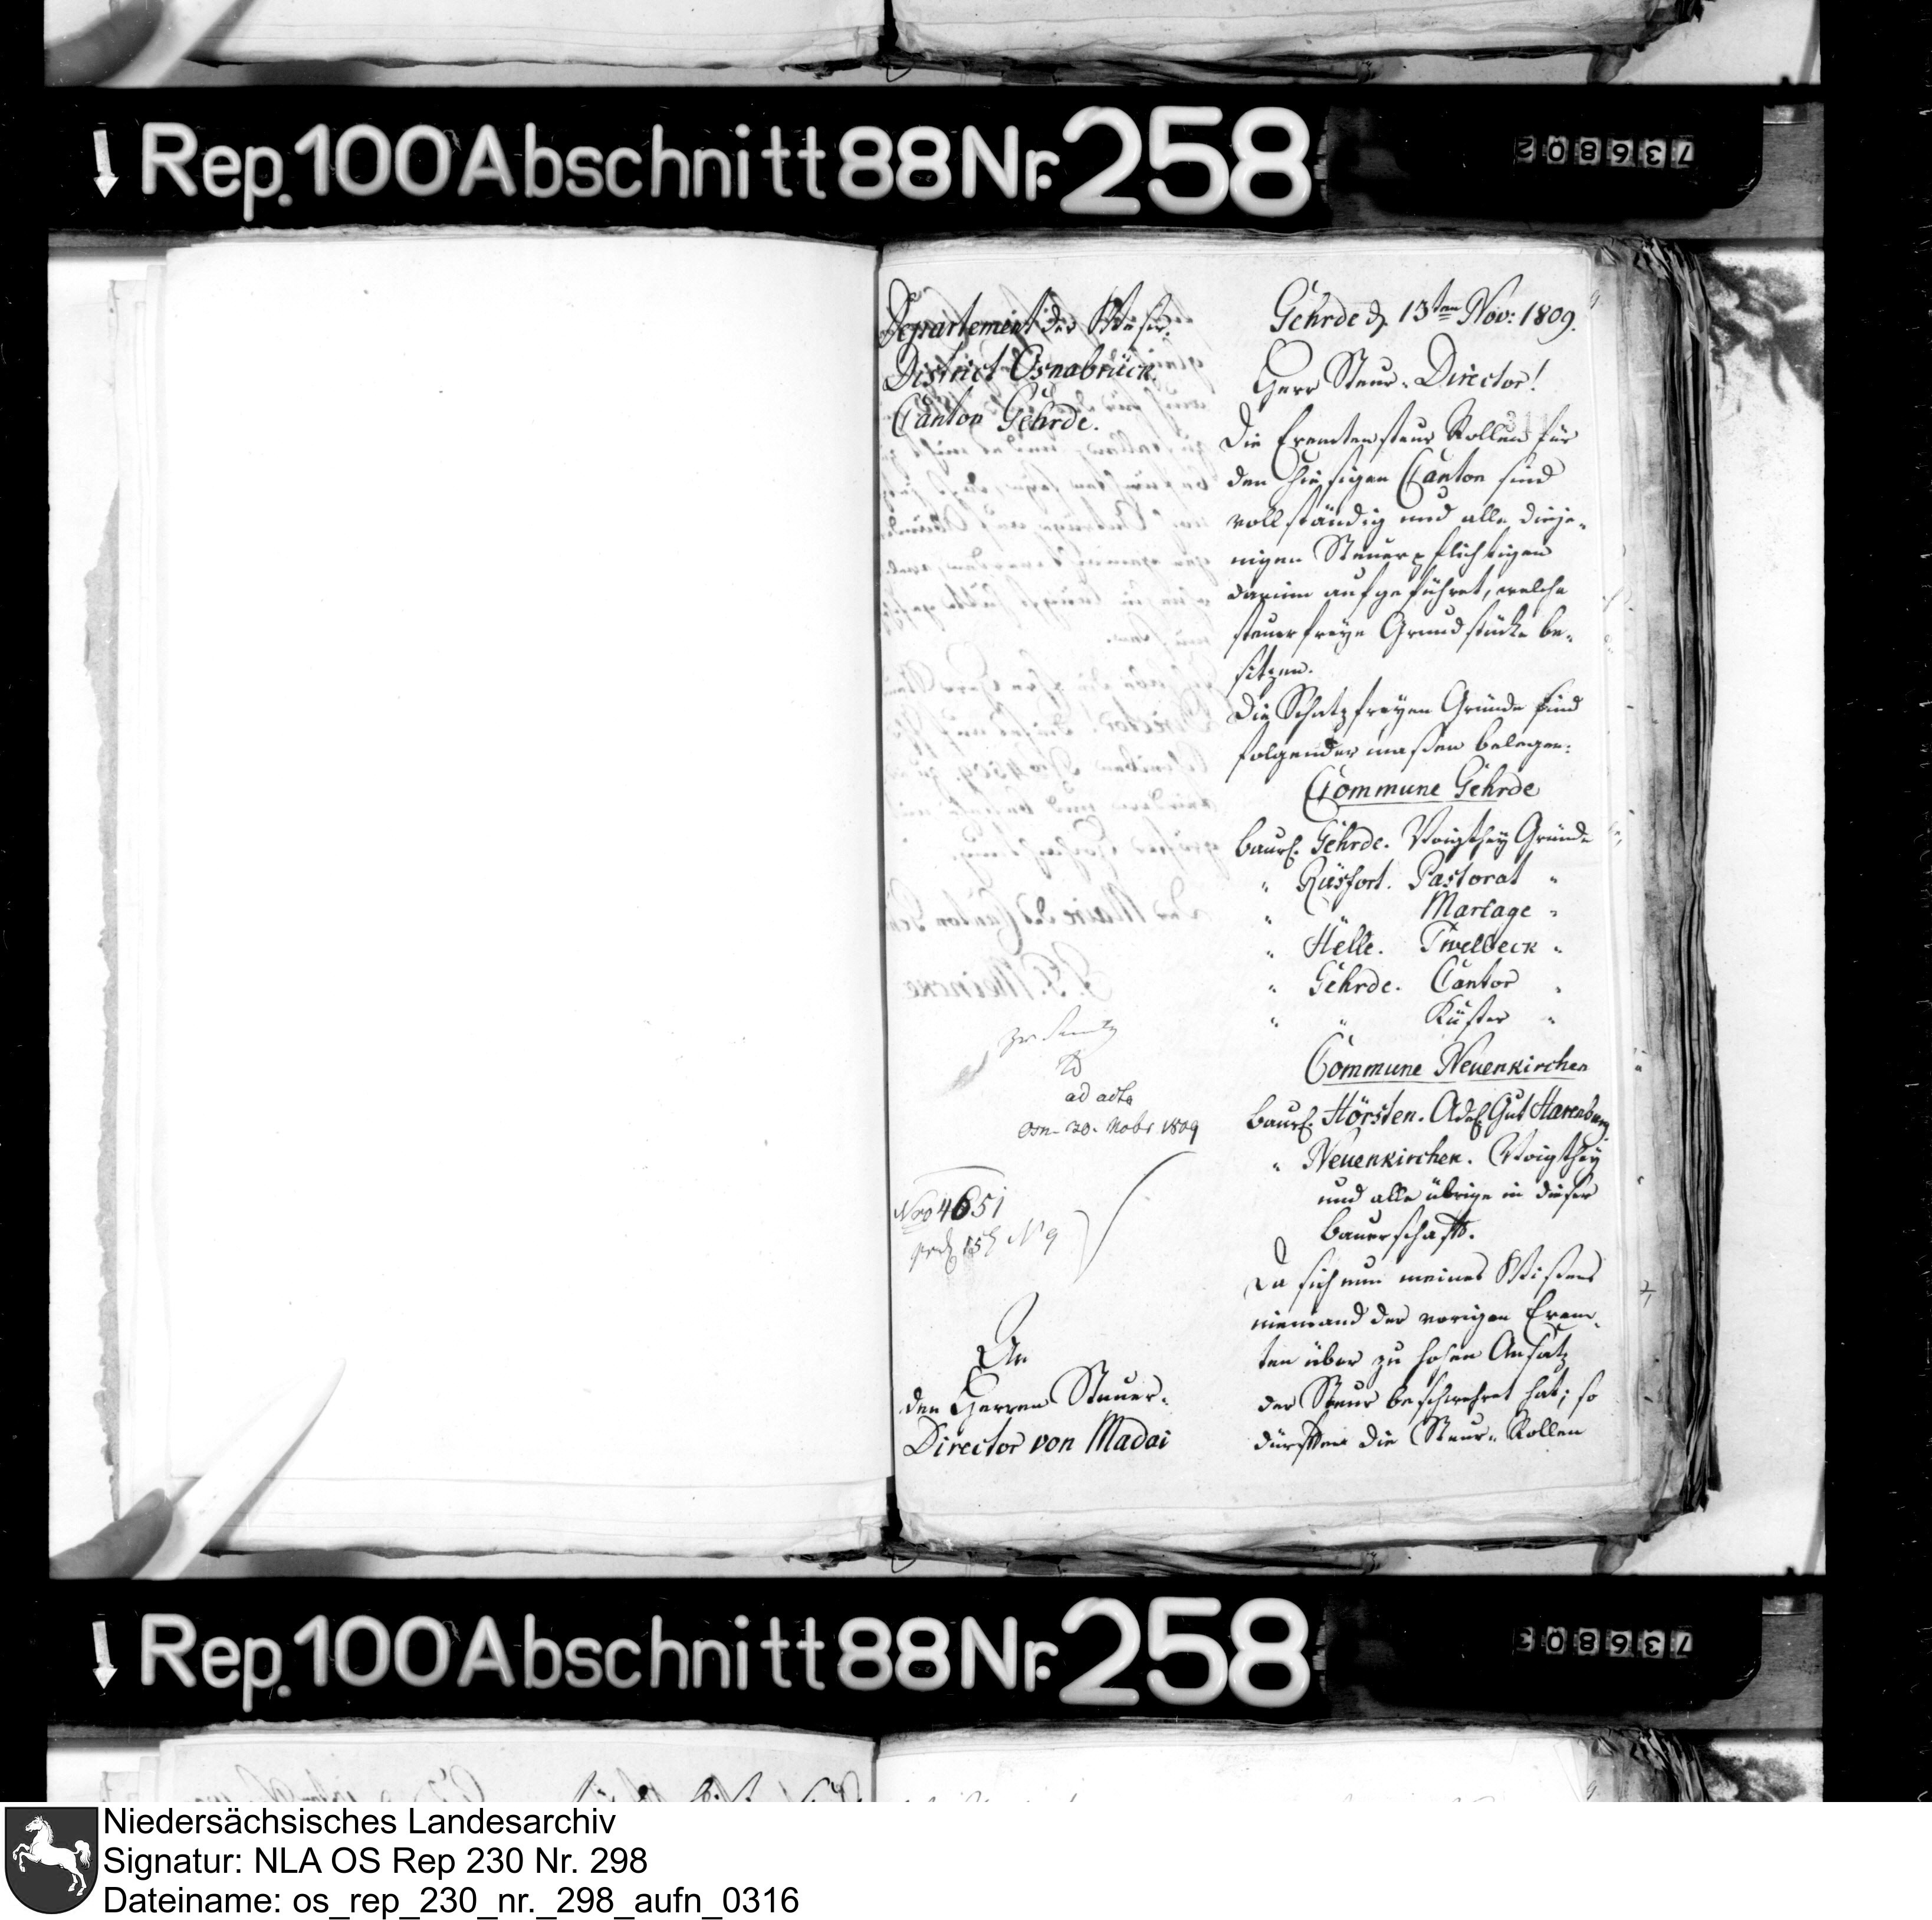 Rep. 100 Abschnitt 88 Nr. 258
736802
Departement der Weser.
District Osnabrück
Canton Gehrde.
Gehrde d. 13ten Nov: 1809.
Herr Steur-Director!
Die Exemtensteur Rollen für
den hiesigen Canton sind
vollständig und alle dieje-
nigen Steuerpflichtigen
darinn aufgeführet, welche
steuerfreye Grundstücke be-
sitzen.
Die Schatzfreyen Gründe sind
folgender maßen belegen:
Commune Gehrde
Baurs. Gehrde. Voigthey Gründe
" Rüsfort. Pastorat "
" Marlage "
" Helle. Twelbeck "
" Gehrde. Cantor "
" " Küster "
Commune Neuenkirchen
Baurs. Hörsten. Adel. Gut Harenburg
" Neuenkirchen. Voigthey
und alle übrige in dieser
Bauerschaft.
Da sich nun meines Wißens
niemand der vorigen Exem-
ten über zu hohen Ansatz
der Steur beschwehret hat; so
dürften die Steur-Rollen
ad acta
Osn. 20. Nobr 1809
Nro 4651
An
den Herren Steuer-
Director von Madai
Rep. 100 Abschnitt 88 Nr. 258
736803
Niedersächsisches Landesarchiv
Signatur: NLA OS Rep 230 Nr. 298
Dateiname: os_rep_230_nr._298_aufn_0316